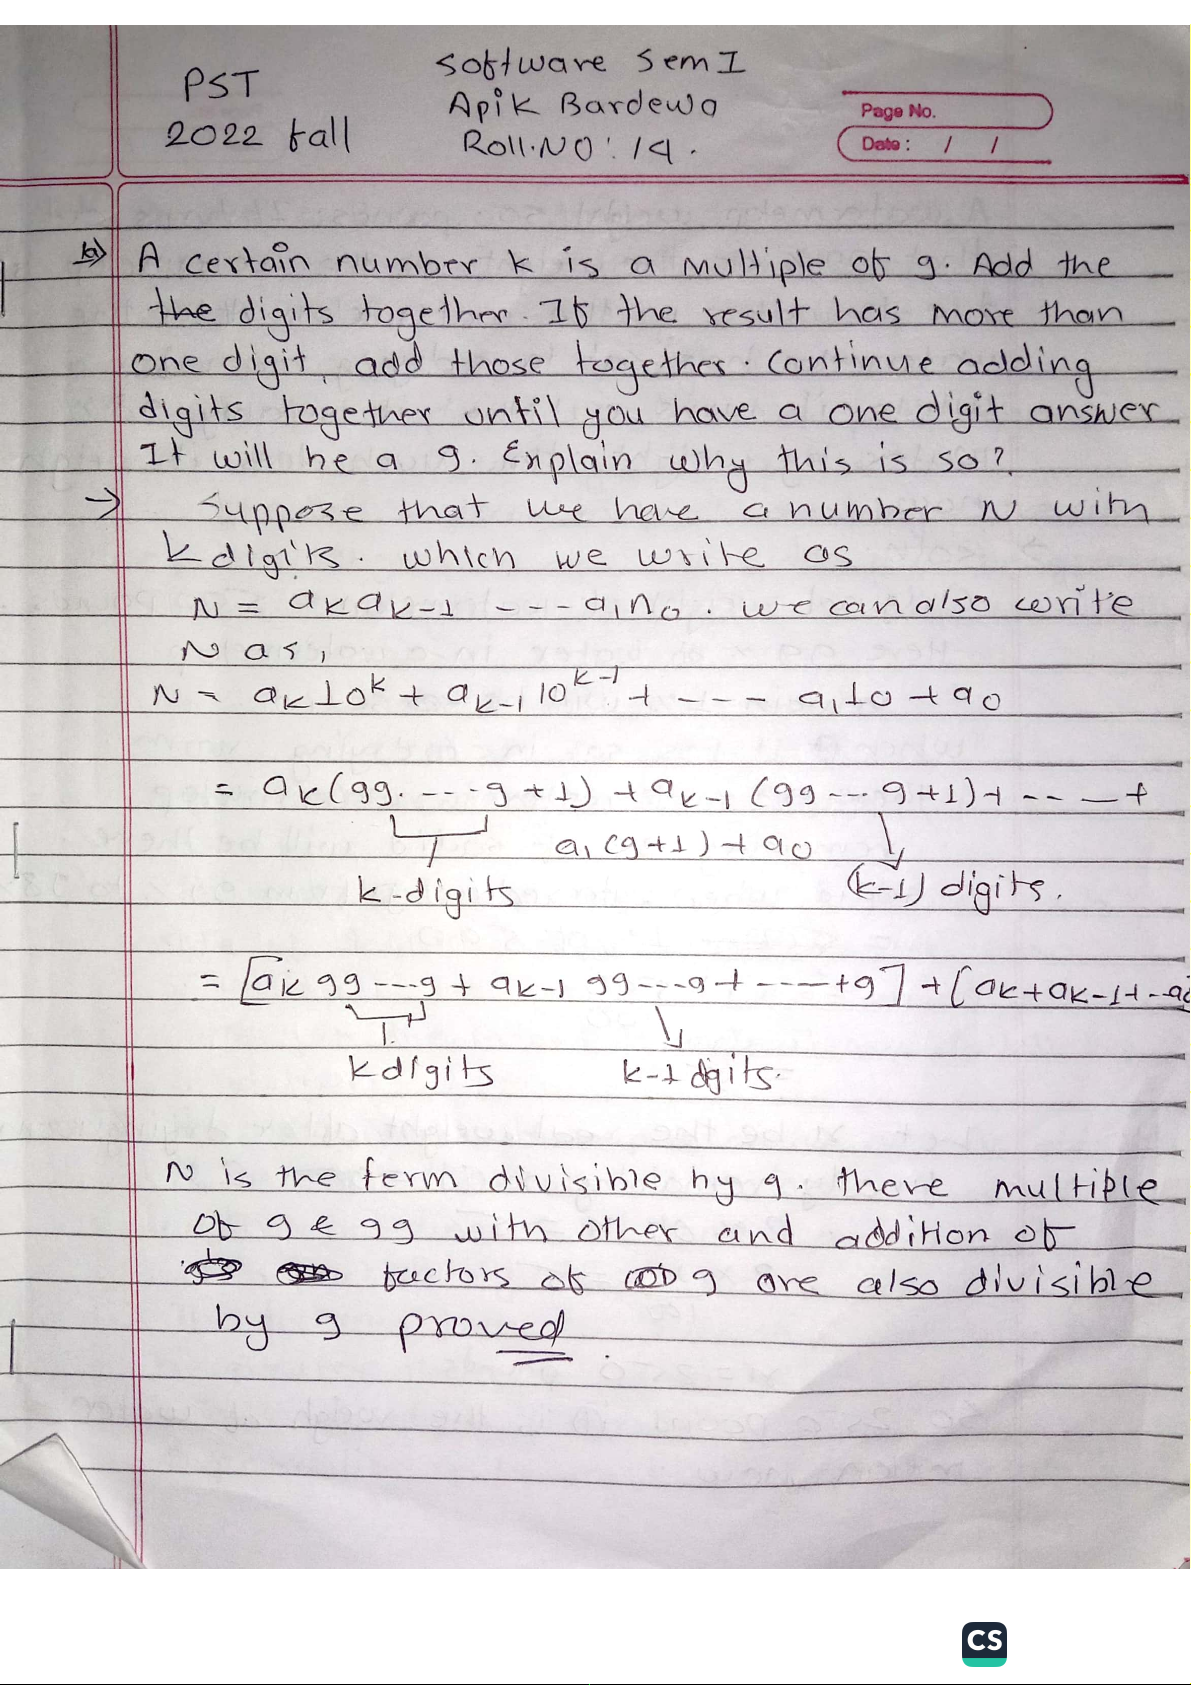 PST
2022 fall
Software Sem I
Apik Bardewa
Roll.NO: 14.
Page No.
Date : / /
1a) A certain number k is a multiple of 9. Add the
the digits together. If the result has more than
one digit, add those together. Continue adding
digits together until you have a one digit answer
It will be a 9. Explain why this is so?
→ Suppose that we have a number N with
k digits. which we write as
N = akak-1 ---- a1n0. we can also write
N as,
N = ak10^k + ak-1 10^k-1 + --- a110 + a0
= ak(99. ---9+1) + ak-1 (99---9+1)+ -- — +
a1(9+1) + a0
k-digits
(k-1) digits.
= [ak 99---9 + ak-1 99---9+ ----+9] + [ak+ak-1+--a0
k digits
k-1 digits.
N is the term divisible by 9. there multiple
of 9 & 99 with other and addition of
factors of 9 are also divisible
by 9 proved
CS